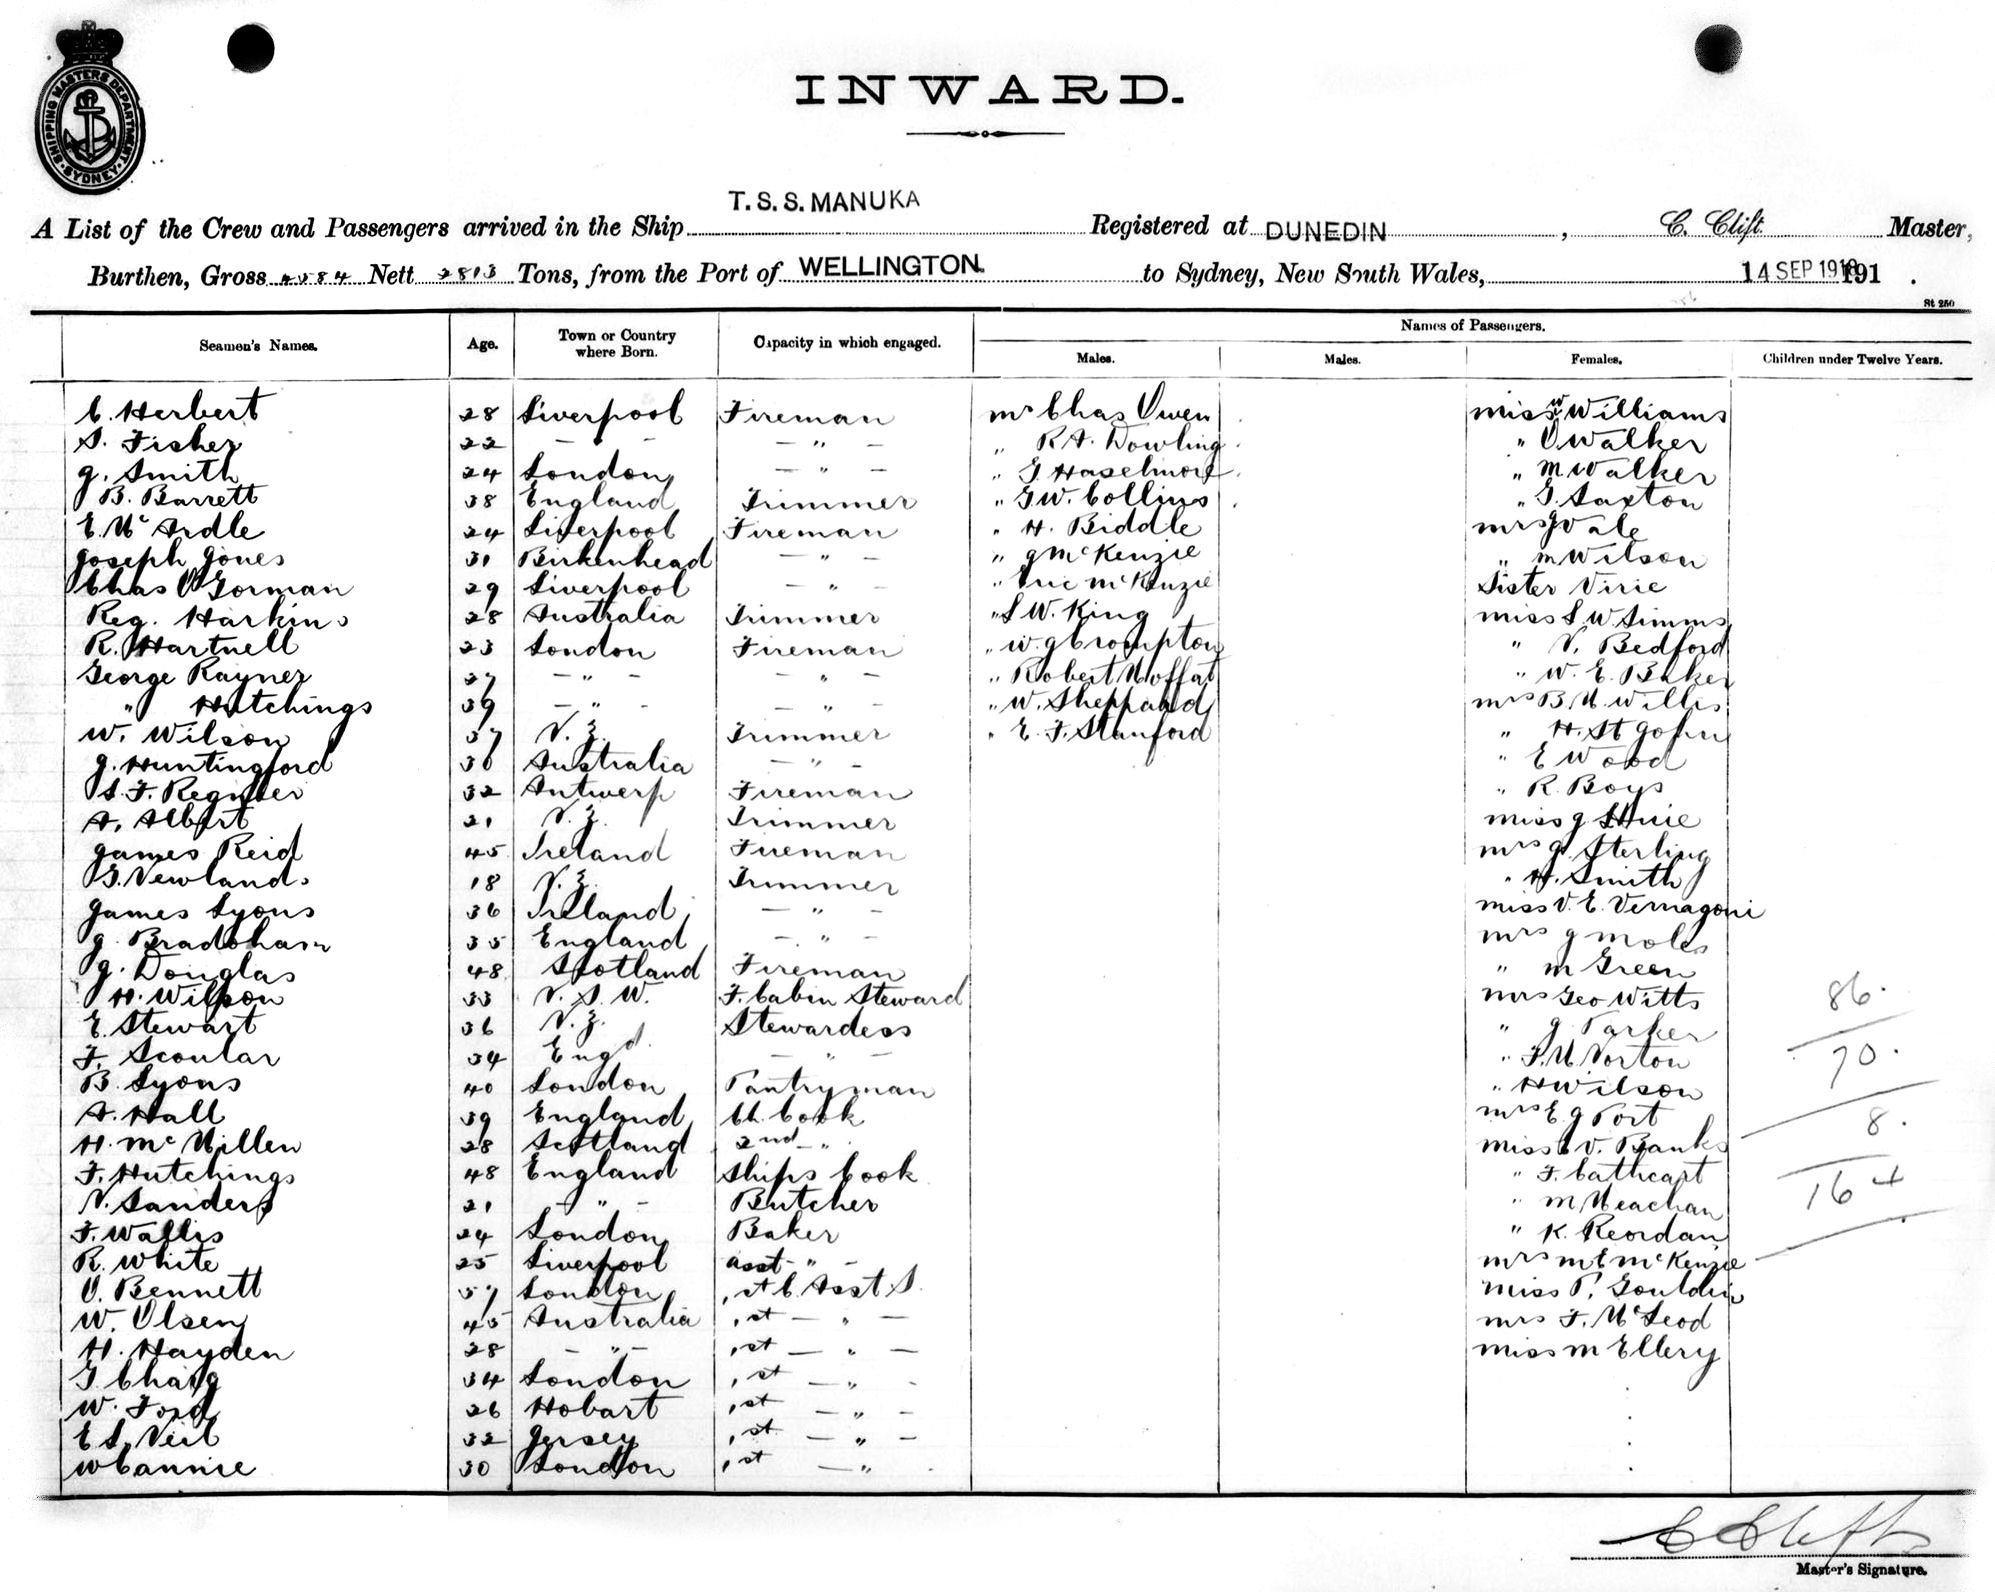 SHIPPING MASTERS DEPARTMENT
SYDNEY
INWARD.
A List of the Crew and Passengers arrived in the Ship T.S.S. MANUKA Registered at DUNEDIN, C. Clift Master,
Burthen, Gross 4584 Nett 2813 Tons, from the Port of WELLINGTON. to Sydney, New South Wales, 14 SEP 191 191 .
St 250
Seamen's Names. Age. Town or Country where Born. Capacity in which engaged. Names of Passengers.
Males. Males. Females. Children under Twelve Years.
C. Herbert 28 Liverpool Fireman Mr Chas Owen Miss W Williams
S. Fisher 22 - - - " - " R A. Dowling " O Walker
J. Smith 24 London - " - " G Haselmore " M Walker
B. Barrett 38 England Trimmer " G W. Collins " G Saxton
E. McArdle 24 Liverpool Fireman " H. Biddle Mrs J Vale
Joseph Jones 31 Birkenhead - " - " J McKenzie " M Wilson
Chas O'Gorman 29 Liverpool - " - " Eric McKenzie Sister Virie
Reg. Harkins 28 Australia Trimmer " S W. King Miss S W Simms
R. Hartnell 23 London Fireman " W. J Crompton " V. Bedford
George Rayner 37 - " - - " - " Robert Moffat " W. E. Baker
" Hutchings 39 - " - - " - " W. Sheppard Mrs B. M. Willis
W. Wilson 37 N.Z. Trimmer " E. F. Stanford " H. St John
J. Huntingford 30 Australia - " - " E Wood
S. F. Regnier 32 Antwerp Fireman " R. Boys
A. Albert 21 N.Z. Trimmer Miss J Hurie
James Reid 45 Ireland Fireman Mrs J. Sterling
G. Newlands 18 N.Z. Trimmer " H. Smith
James Lyons 36 Ireland - " - Miss V. E. Vernagoni
J. Bradshaw 35 England - " - Mrs J Moles
J. Douglas 48 Scotland Fireman " M Green
H. Wilson 33 N.S.W. F. Cabin Steward Mrs Geo Witts 86.
E. Stewart 36 N.Z. Stewardess " J Parker
F. Scoular 34 Engd. - " - " F. M Norton 70.
B. Lyons 40 London Pantryman " H Wilson
A. Hall 39 England Ch. Cook Mrs E. J Port 8.
H. McMillen 28 Scotland 2nd " Miss V. Banks
F. Hutchings 48 England Ships Cook " F. Cathcart 164
N. Sanders 21 - " - Butcher " M Meachan
F. Wallis 24 London Baker " K. Reordan
R. White 25 Liverpool asst - " - Mrs M E McKenzie
O. Bennett 37 London 1st C Asst S. Miss P. Gouldin
W. Olsen 45 Australia 1st - " - Mrs F. McLeod
H. Hayden 28 - " - 1st - " - Miss M Ellery
G. Craig 34 London 1st - " -
W. Ford 26 Hobart 1st - " -
E S. Veit 32 Jersey 1st - " -
W Cannie 30 London 1st - "
C Clift
Master's Signature.